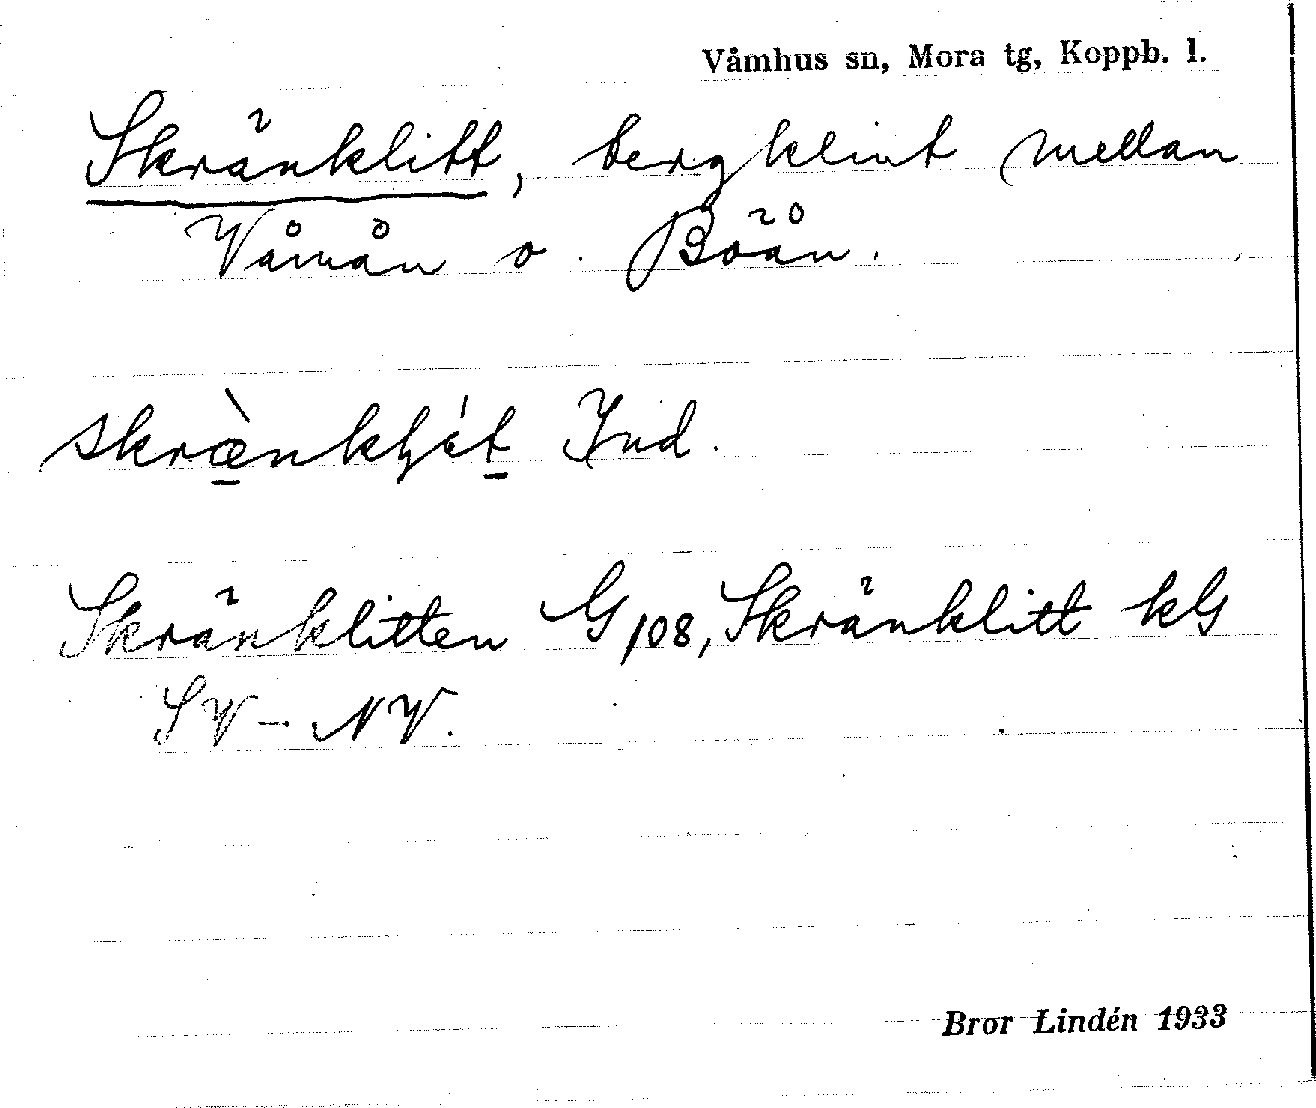 Våmhus sn, Mora tg, Koppb. l.
Skränklitt, bergklint mellan
Våmån o. Böån.
Ind.
Skränklitten G 108, Skränklitt kG
SV – NV.
Bror Lindén 1933